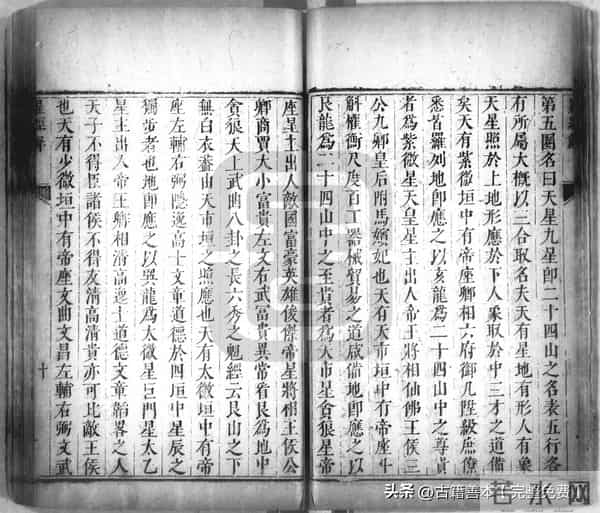 第五圖名曰天星九星卽二十四山之名表五行各
有所屬大概以三合取名夫天有星地有形人有象
天星照於上地形應於下人象取於中三才之道備
矣天有紫微垣中有帝座卿相六府御几陛級庶僚
悉皆羅列地卽應之以亥龍爲二十四山中之尊貴
者爲紫微星天皇星主出人帝王將相仙佛王侯三
公九卿皇后附馬嬪妃也天有天市垣中有帝座斗
斛權衡尺度百工器械貿易之道咸備地卽應之以
艮龍爲二十四山中之至貴者爲天市星貪狼星帝
座星主出人敵國富豪英雄俊傑帝星將相王侯公
卿商賈大小富貴左文右武富貴異常者艮爲地中
貪狼天上武曲八卦之長六秀之魁經云艮山之下
無白衣葢由天市垣之照應也天有太微垣中有帝
座左輔右弼隱逸高士文章道德於四垣中星辰之
獨帝者也地卽應之以巽龍爲太微星巨門星太乙
星主出人帝王卿相清高逸士道德文章韜畧之人
天子不得臣諸侯不得友清高清貴亦可比敵王侯
也天有少微垣中有帝座文曲文昌左輔右弼文武
十
头条 @古籍善本